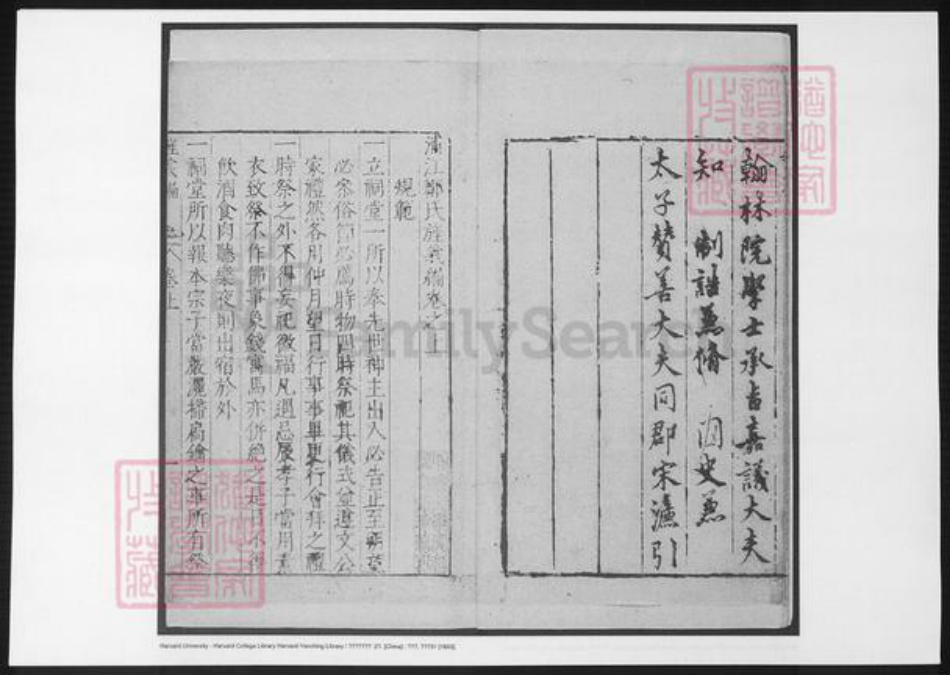 翰林院學士承旨嘉議大夫
知 制誥兼脩 國史兼
太子贊善大夫同郡宋濂引
浦江鄭氏旌義編卷之上
規範
一立祠堂一所以奉先世神主出入必告正至朔望
必參俗節必薦時物四時祭祀其儀式並遵文公
家禮然各用仲月望日行事事畢更行會拜之禮
一時祭之外不得妄祀徼福凡遇忌辰孝子當用素
衣致祭不作佛事象錢寓馬亦併絕之是日不得
飲酒食肉聽樂夜則出宿於外
一祠堂所以報本宗子當嚴灑掃扃鑰之事所有祭
旌義編 卷上 一
FamilySearch
Harvard University - Harvard College Library Harvard-Yenching Library / ??????? 2?. [China] : ???, ????/ [1600].